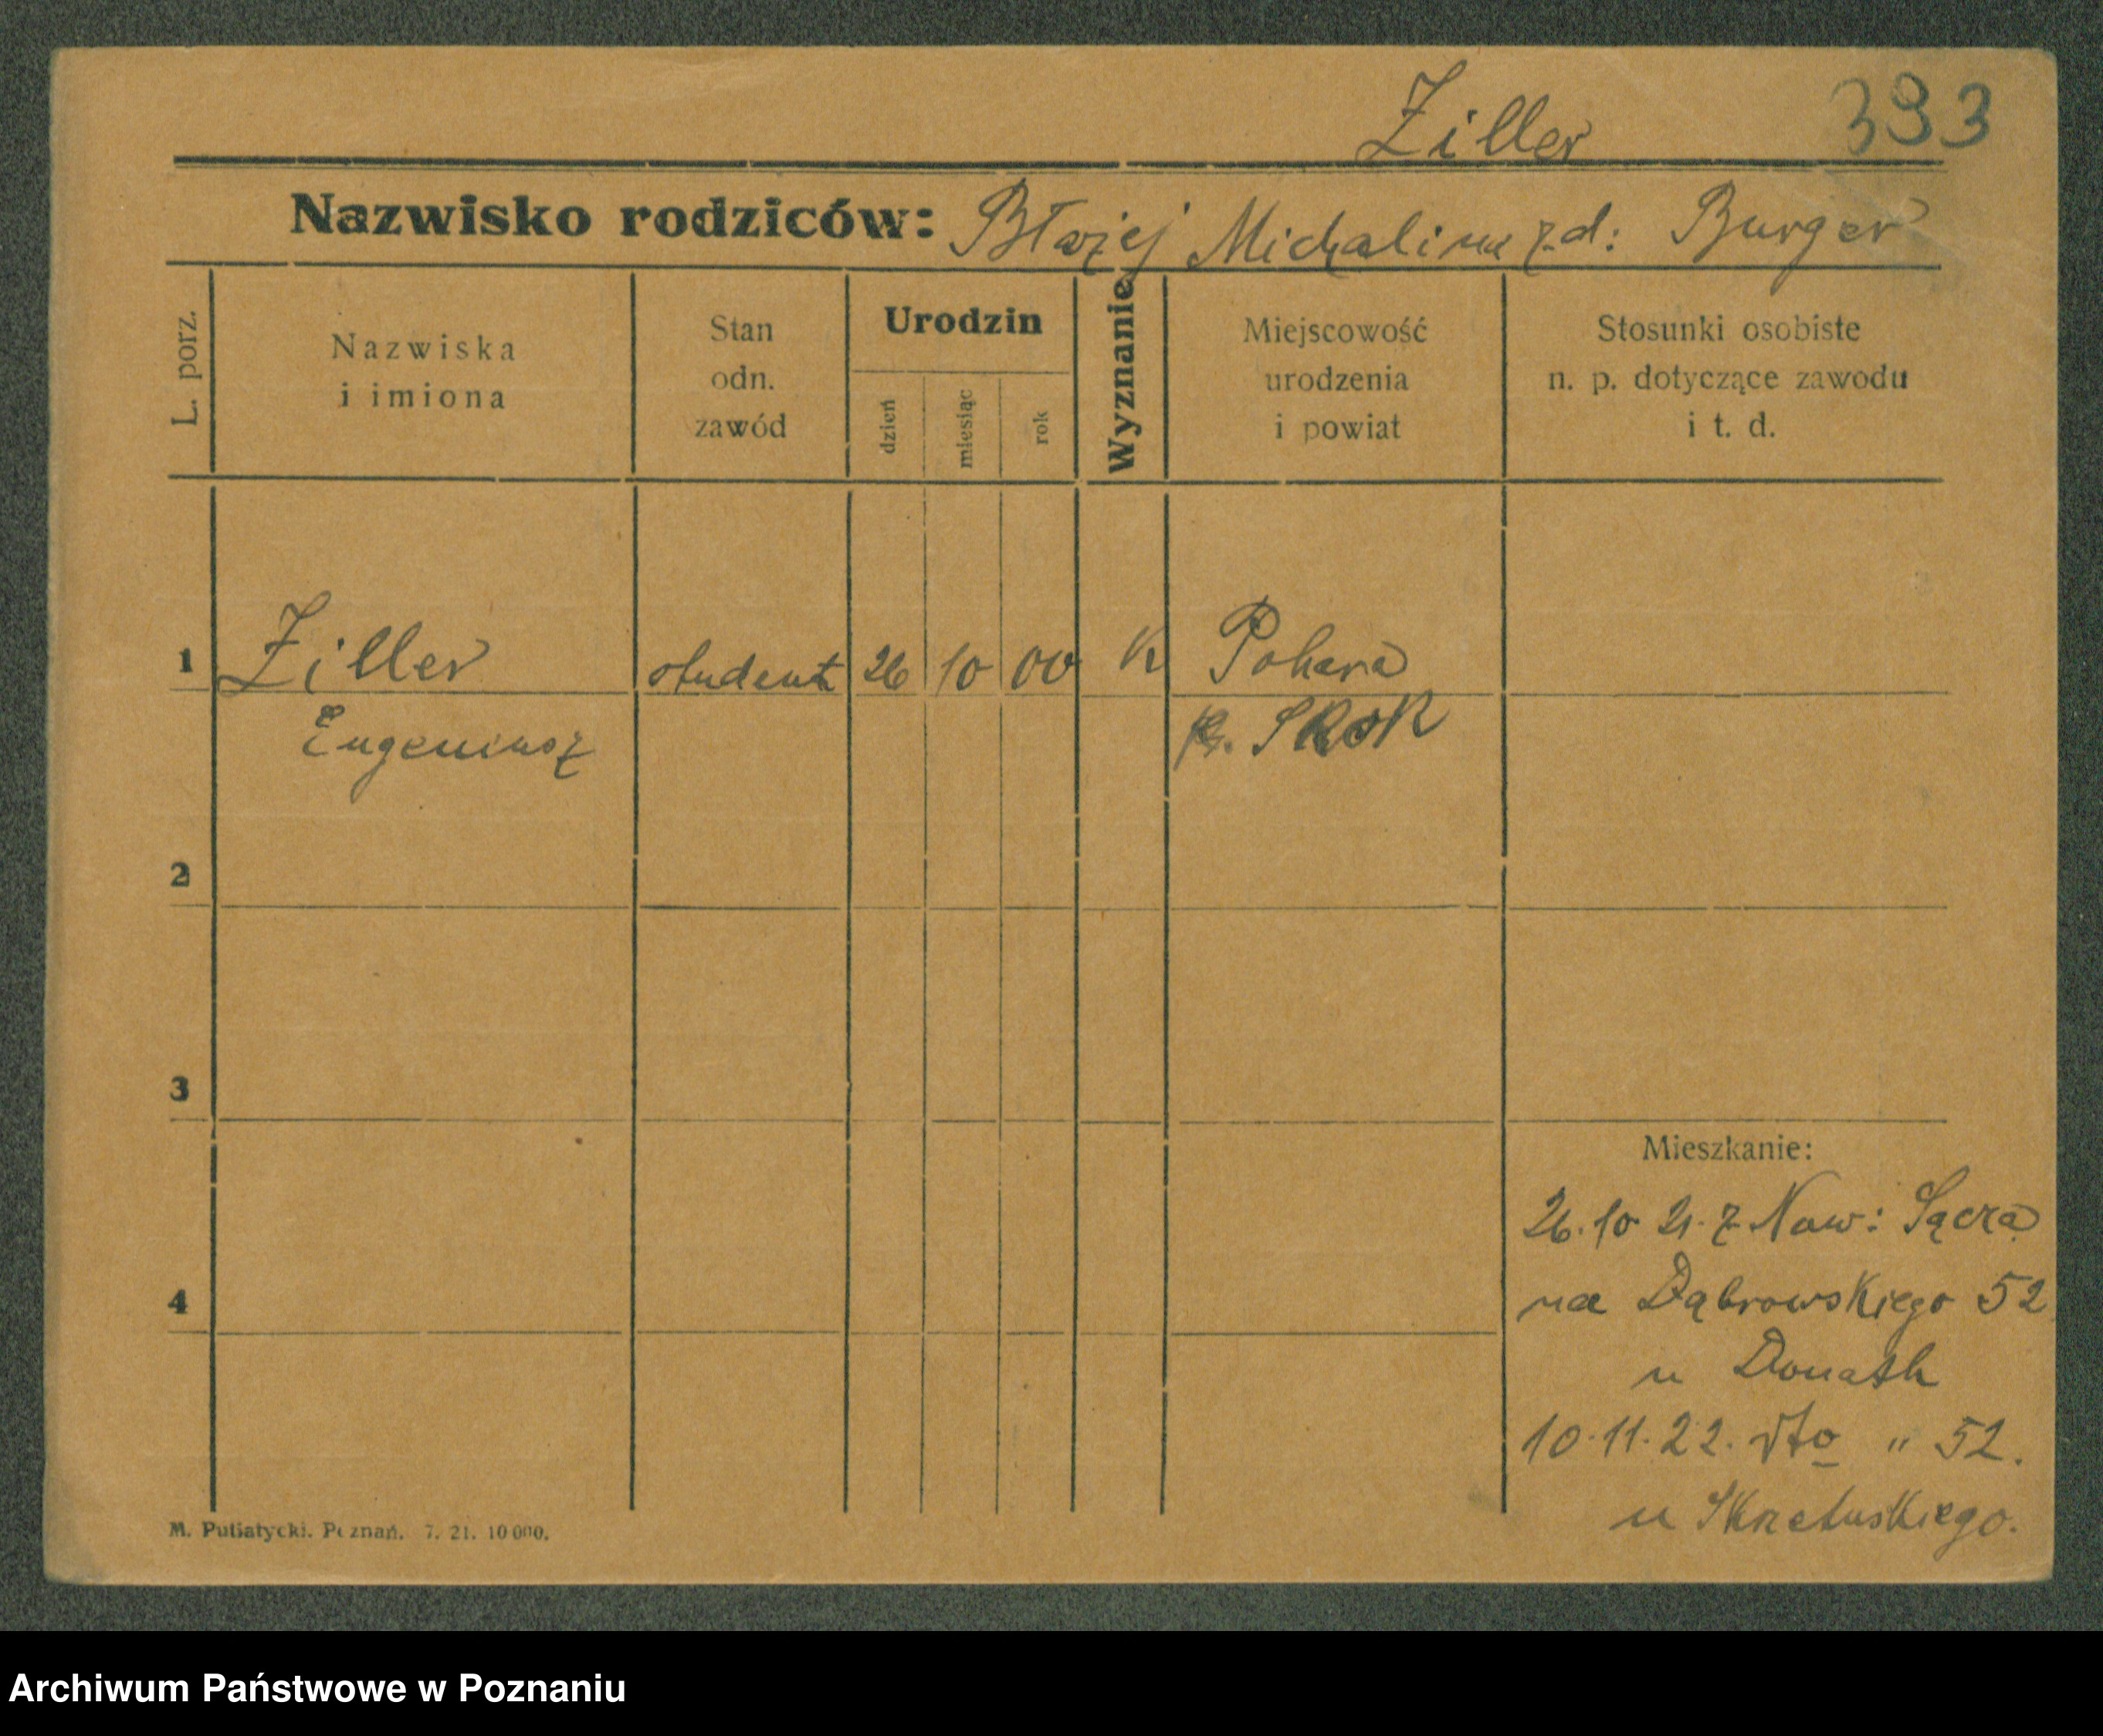 Ziller 393
Nazwisko rodziców: Błażej Michalina z d: Burger
L. porz.
Nazwiska
i imiona
Stan
odn.
zawód
Urodzin
dzień
miesiąc
rok
Wyznanie
Miejscowość
urodzenia
i powiat
Stosunki osobiste
n. p. dotyczące zawodu
i t. d.
1 Ziller student 26 10 00 K
Eugeniusz
2
3
4
Mieszkanie:
26.10 21. z Now: Sącza
na Dąbrowskiego 52
u Donath
10.11.22. dto " 52.
u Skrzetuskiego.
M. Putiatycki. Poznań. 7. 21. 10 000.
Archiwum Państwowe w Poznaniu